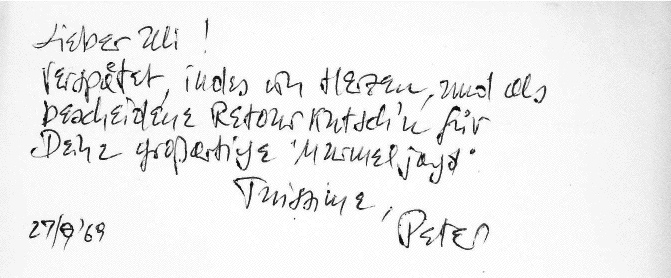 Lieber Uli!
Verspätet, indes von Herzen, und als
bescheidene Retourkutsch'n für
Deine großartige "Murmeljagd"
Tuissime,
Peter
27/9/'69